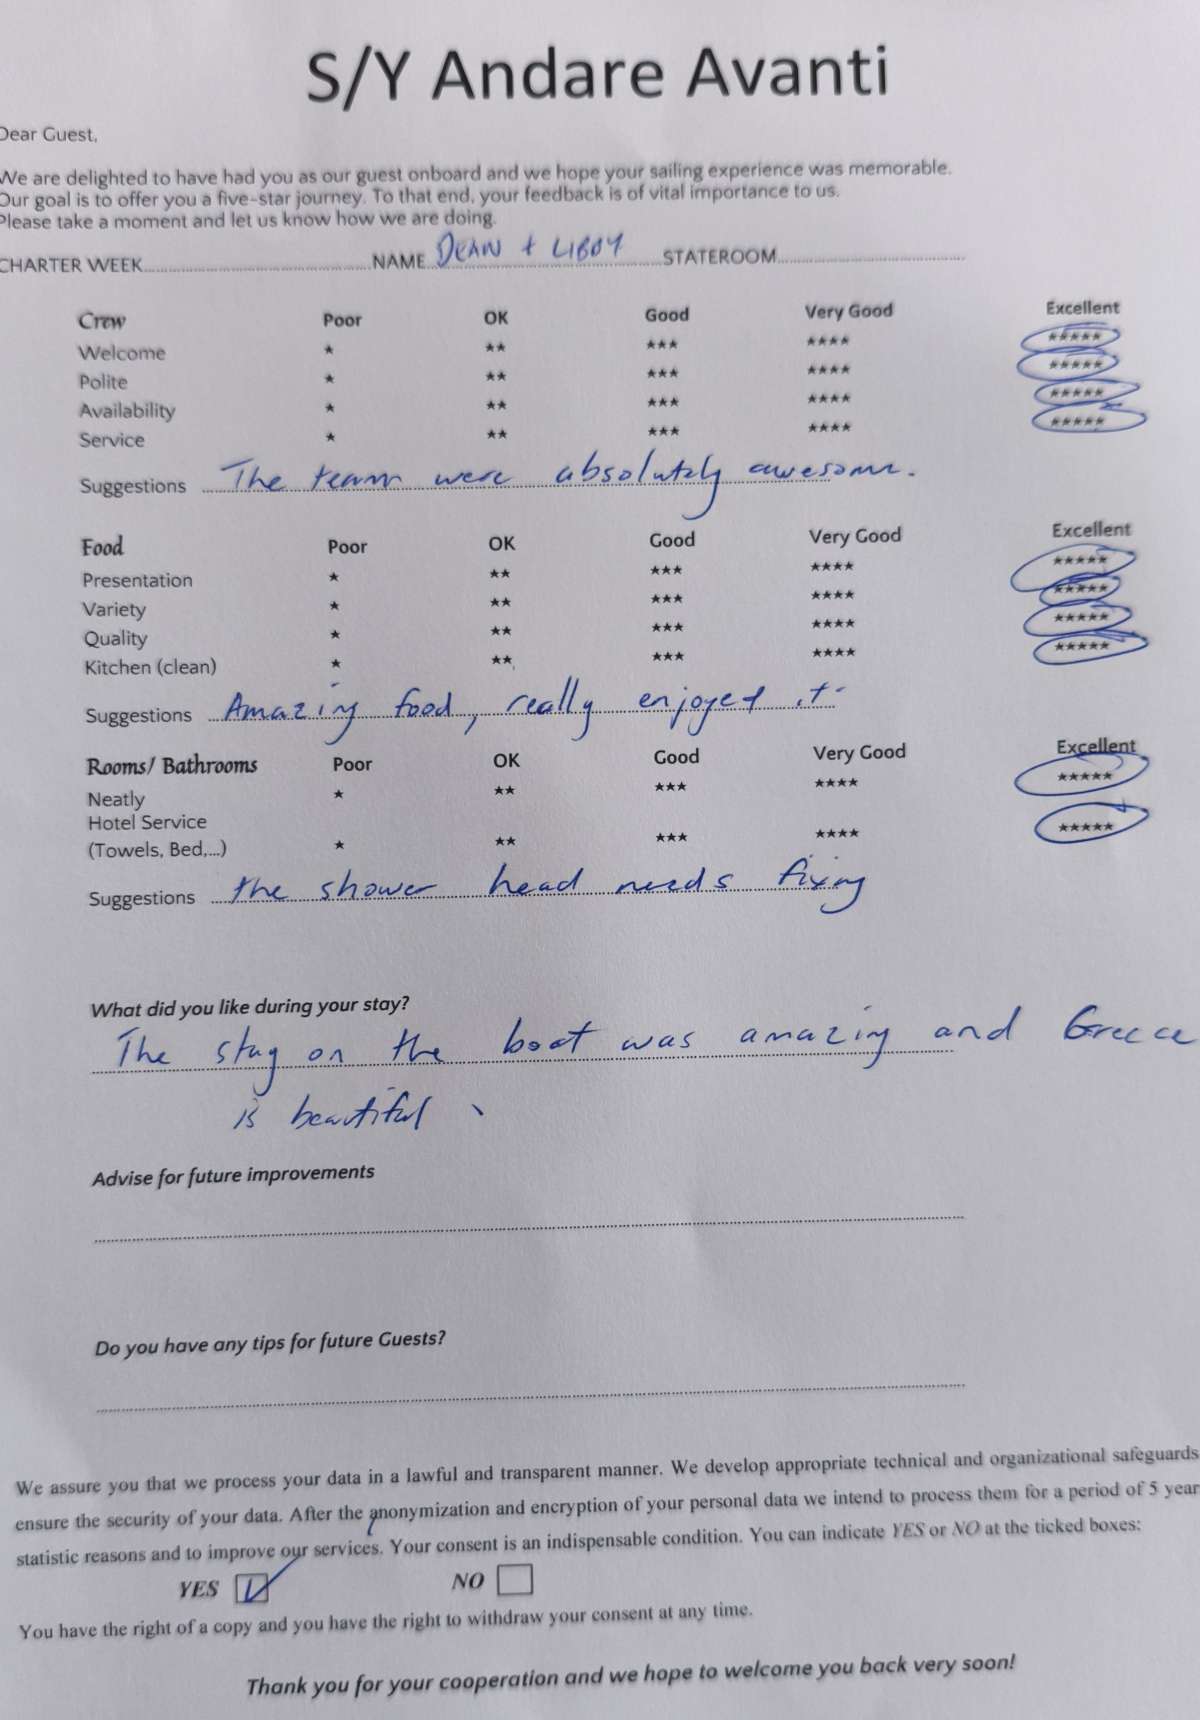 S/Y Andare Avanti
Dear Guest,
We are delighted to have had you as our guest onboard and we hope your sailing experience was memorable.
Our goal is to offer you a five-star journey. To that end, your feedback is of vital importance to us.
Please take a moment and let us know how we are doing.
CHARTER WEEK NAME DEAN + LIBBY STATEROOM
Crew Poor OK Good Very Good Excellent
Welcome ★ ★★ ★★★ ★★★★ ★★★★★
Polite ★ ★★ ★★★ ★★★★ ★★★★★
Availability ★ ★★ ★★★ ★★★★ ★★★★★
Service ★ ★★ ★★★ ★★★★ ★★★★★
Suggestions The team were absolutely awesome.
Food Poor OK Good Very Good Excellent
Presentation ★ ★★ ★★★ ★★★★ ★★★★★
Variety ★ ★★ ★★★ ★★★★ ★★★★★
Quality ★ ★★ ★★★ ★★★★ ★★★★★
Kitchen (clean) ★ ★★ ★★★ ★★★★ ★★★★★
Suggestions Amazing food, really enjoyed it.
Rooms/ Bathrooms Poor OK Good Very Good Excellent
Neatly ★ ★★ ★★★ ★★★★ ★★★★★
Hotel Service
(Towels, Bed,...) ★ ★★ ★★★ ★★★★ ★★★★★
Suggestions the shower head needs fixing
What did you like during your stay?
The stay on the boat was amazing and Greece
is beautiful.
Advise for future improvements
Do you have any tips for future Guests?
We assure you that we process your data in a lawful and transparent manner. We develop appropriate technical and organizational safeguards
ensure the security of your data. After the anonymization and encryption of your personal data we intend to process them for a period of 5 year
statistic reasons and to improve our services. Your consent is an indispensable condition. You can indicate YES or NO at the ticked boxes:
YES NO
You have the right of a copy and you have the right to withdraw your consent at any time.
Thank you for your cooperation and we hope to welcome you back very soon!